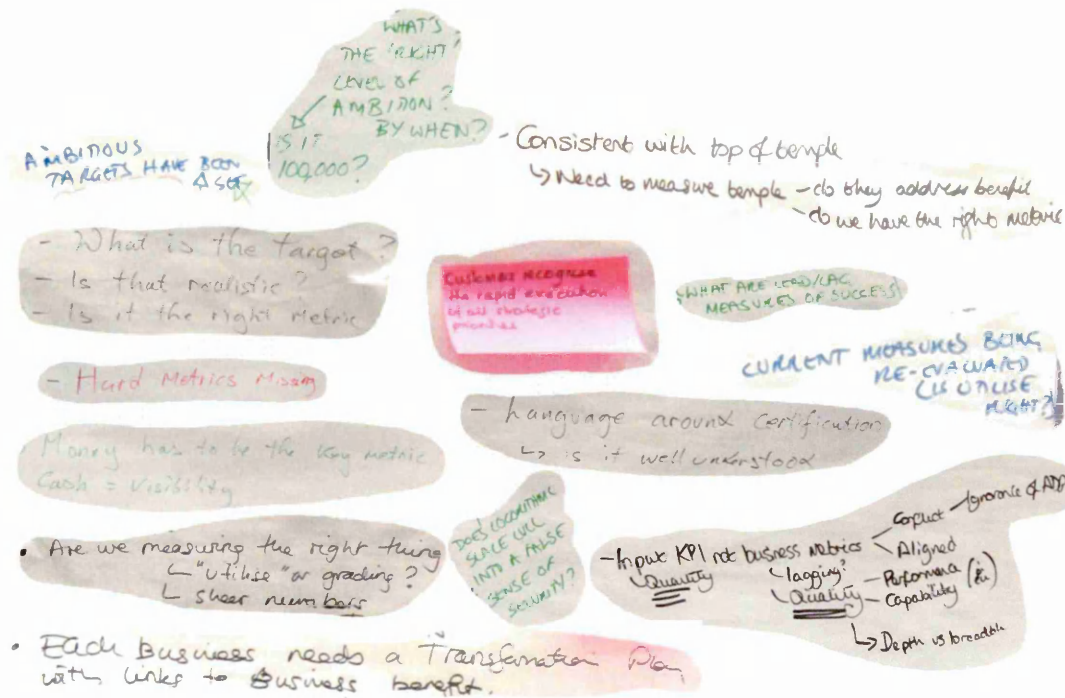 WHAT'S
THE 'RIGHT'
LEVEL OF
AMBITION?
BY WHEN?
IS IT
100,000?
AMBITIOUS
TARGETS HAVE BEEN
SET
- Consistent with top of temple
↳ Need to measure temple - do they address benefit
- do we have the right metric
- What is the target?
- Is that realistic?
- Is it the right metric
Customers recognise
the rapid execution
of all strategic
priorities
WHAT ARE LEAD/LAG
MEASURES OF SUCCESS
CURRENT MEASURES BEING
RE-EVALUATED
(IS UTILISE
RIGHT?)
- Hard Metrics Missing
- Language around certification
↳ is it well understood
Money has to be the key metric
Cash = Visibility
• Are we measuring the right thing
↳ "Utilise" or grading?
↳ sheer numbers
DOES LOGORITHMIC
SCALE LULL
INTO A FALSE
SENSE OF
SECURITY?
- Input KPI not business metrics
Quantity
lagging?
Quality
Conflict - Ignorance of
Aligned
Performance
Capability
↳ Depth vs breadth
• Each Business needs a Transformation Plan
with links to Business benefit.